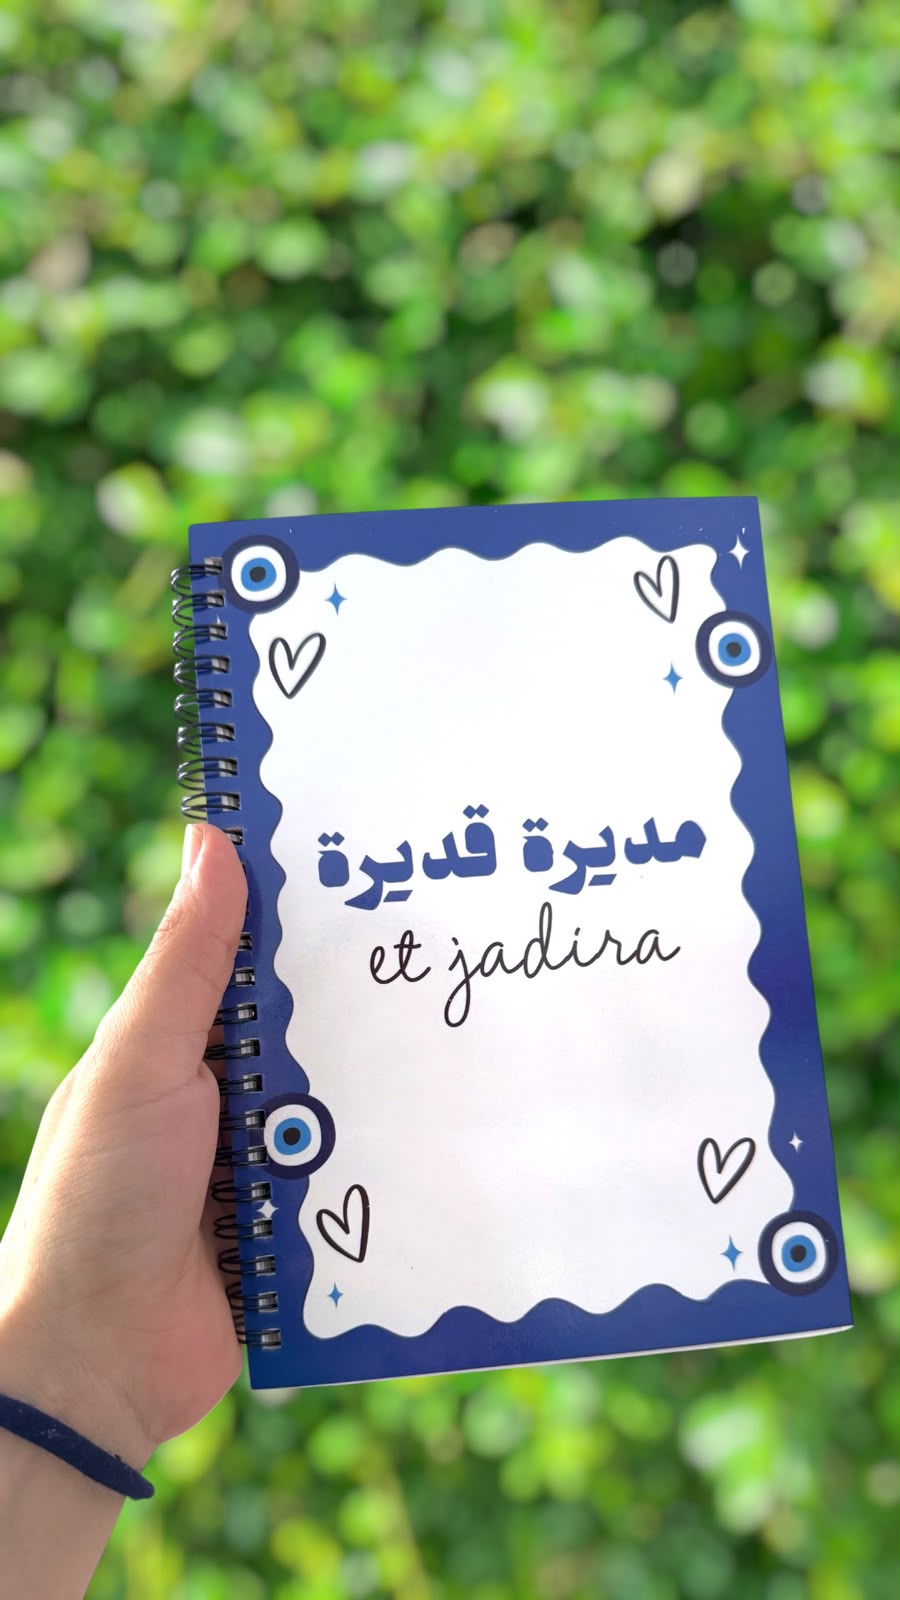 مديرة قديرة
et jadira